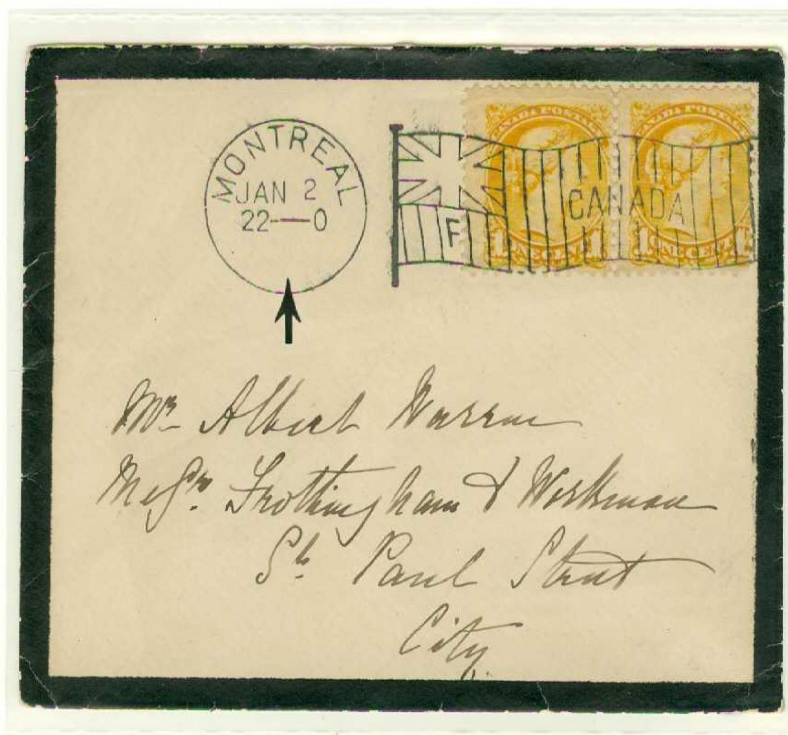 MONTREAL
JAN 2
22—0
F
CANADA
CANADA POSTAGE
CANADA POSTAGE
1 ONE CENT 1
1 ONE CENT 1
Mr Albert Warren
Messrs. Frothingham & Workman
St. Paul Street
City